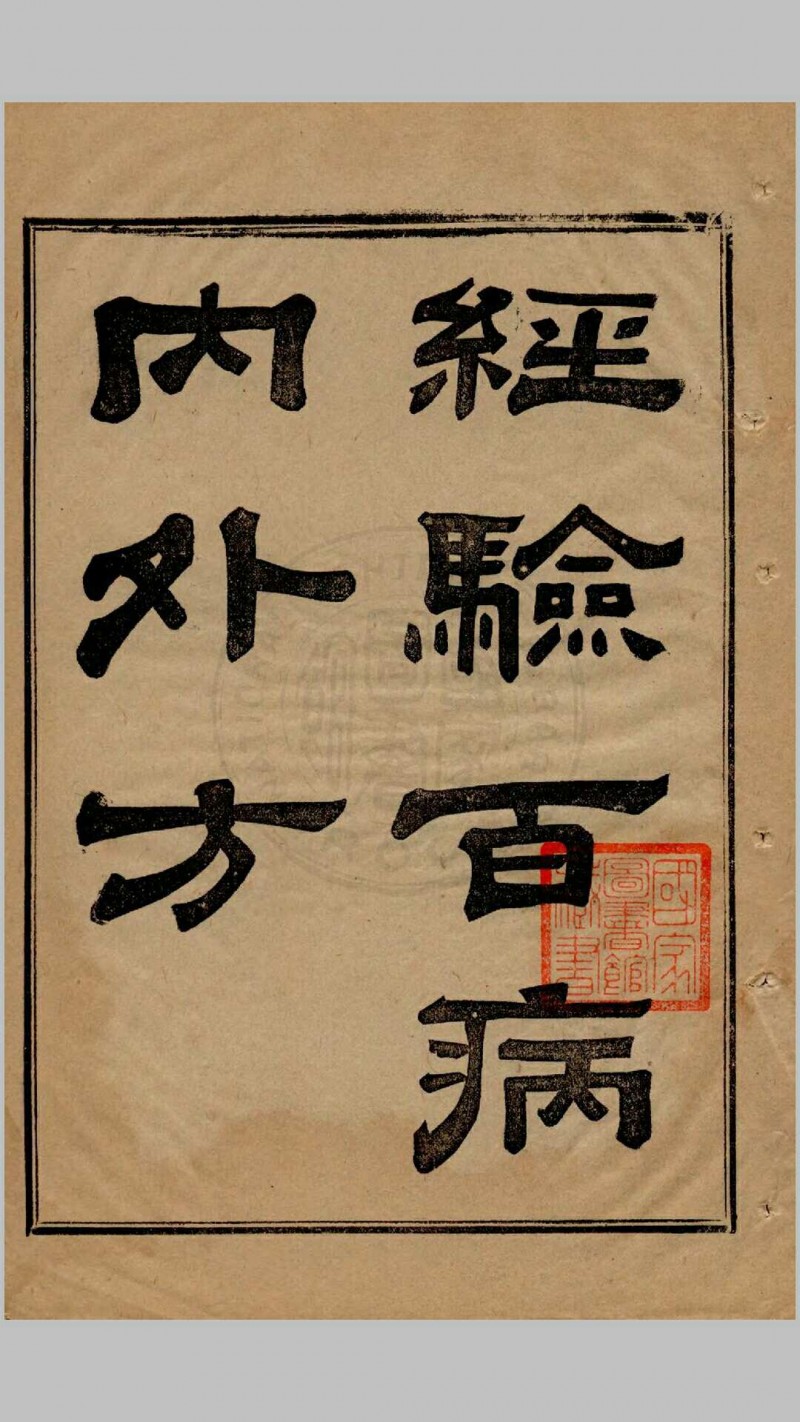 經驗百病
內外方
國家
圖書館
藏書